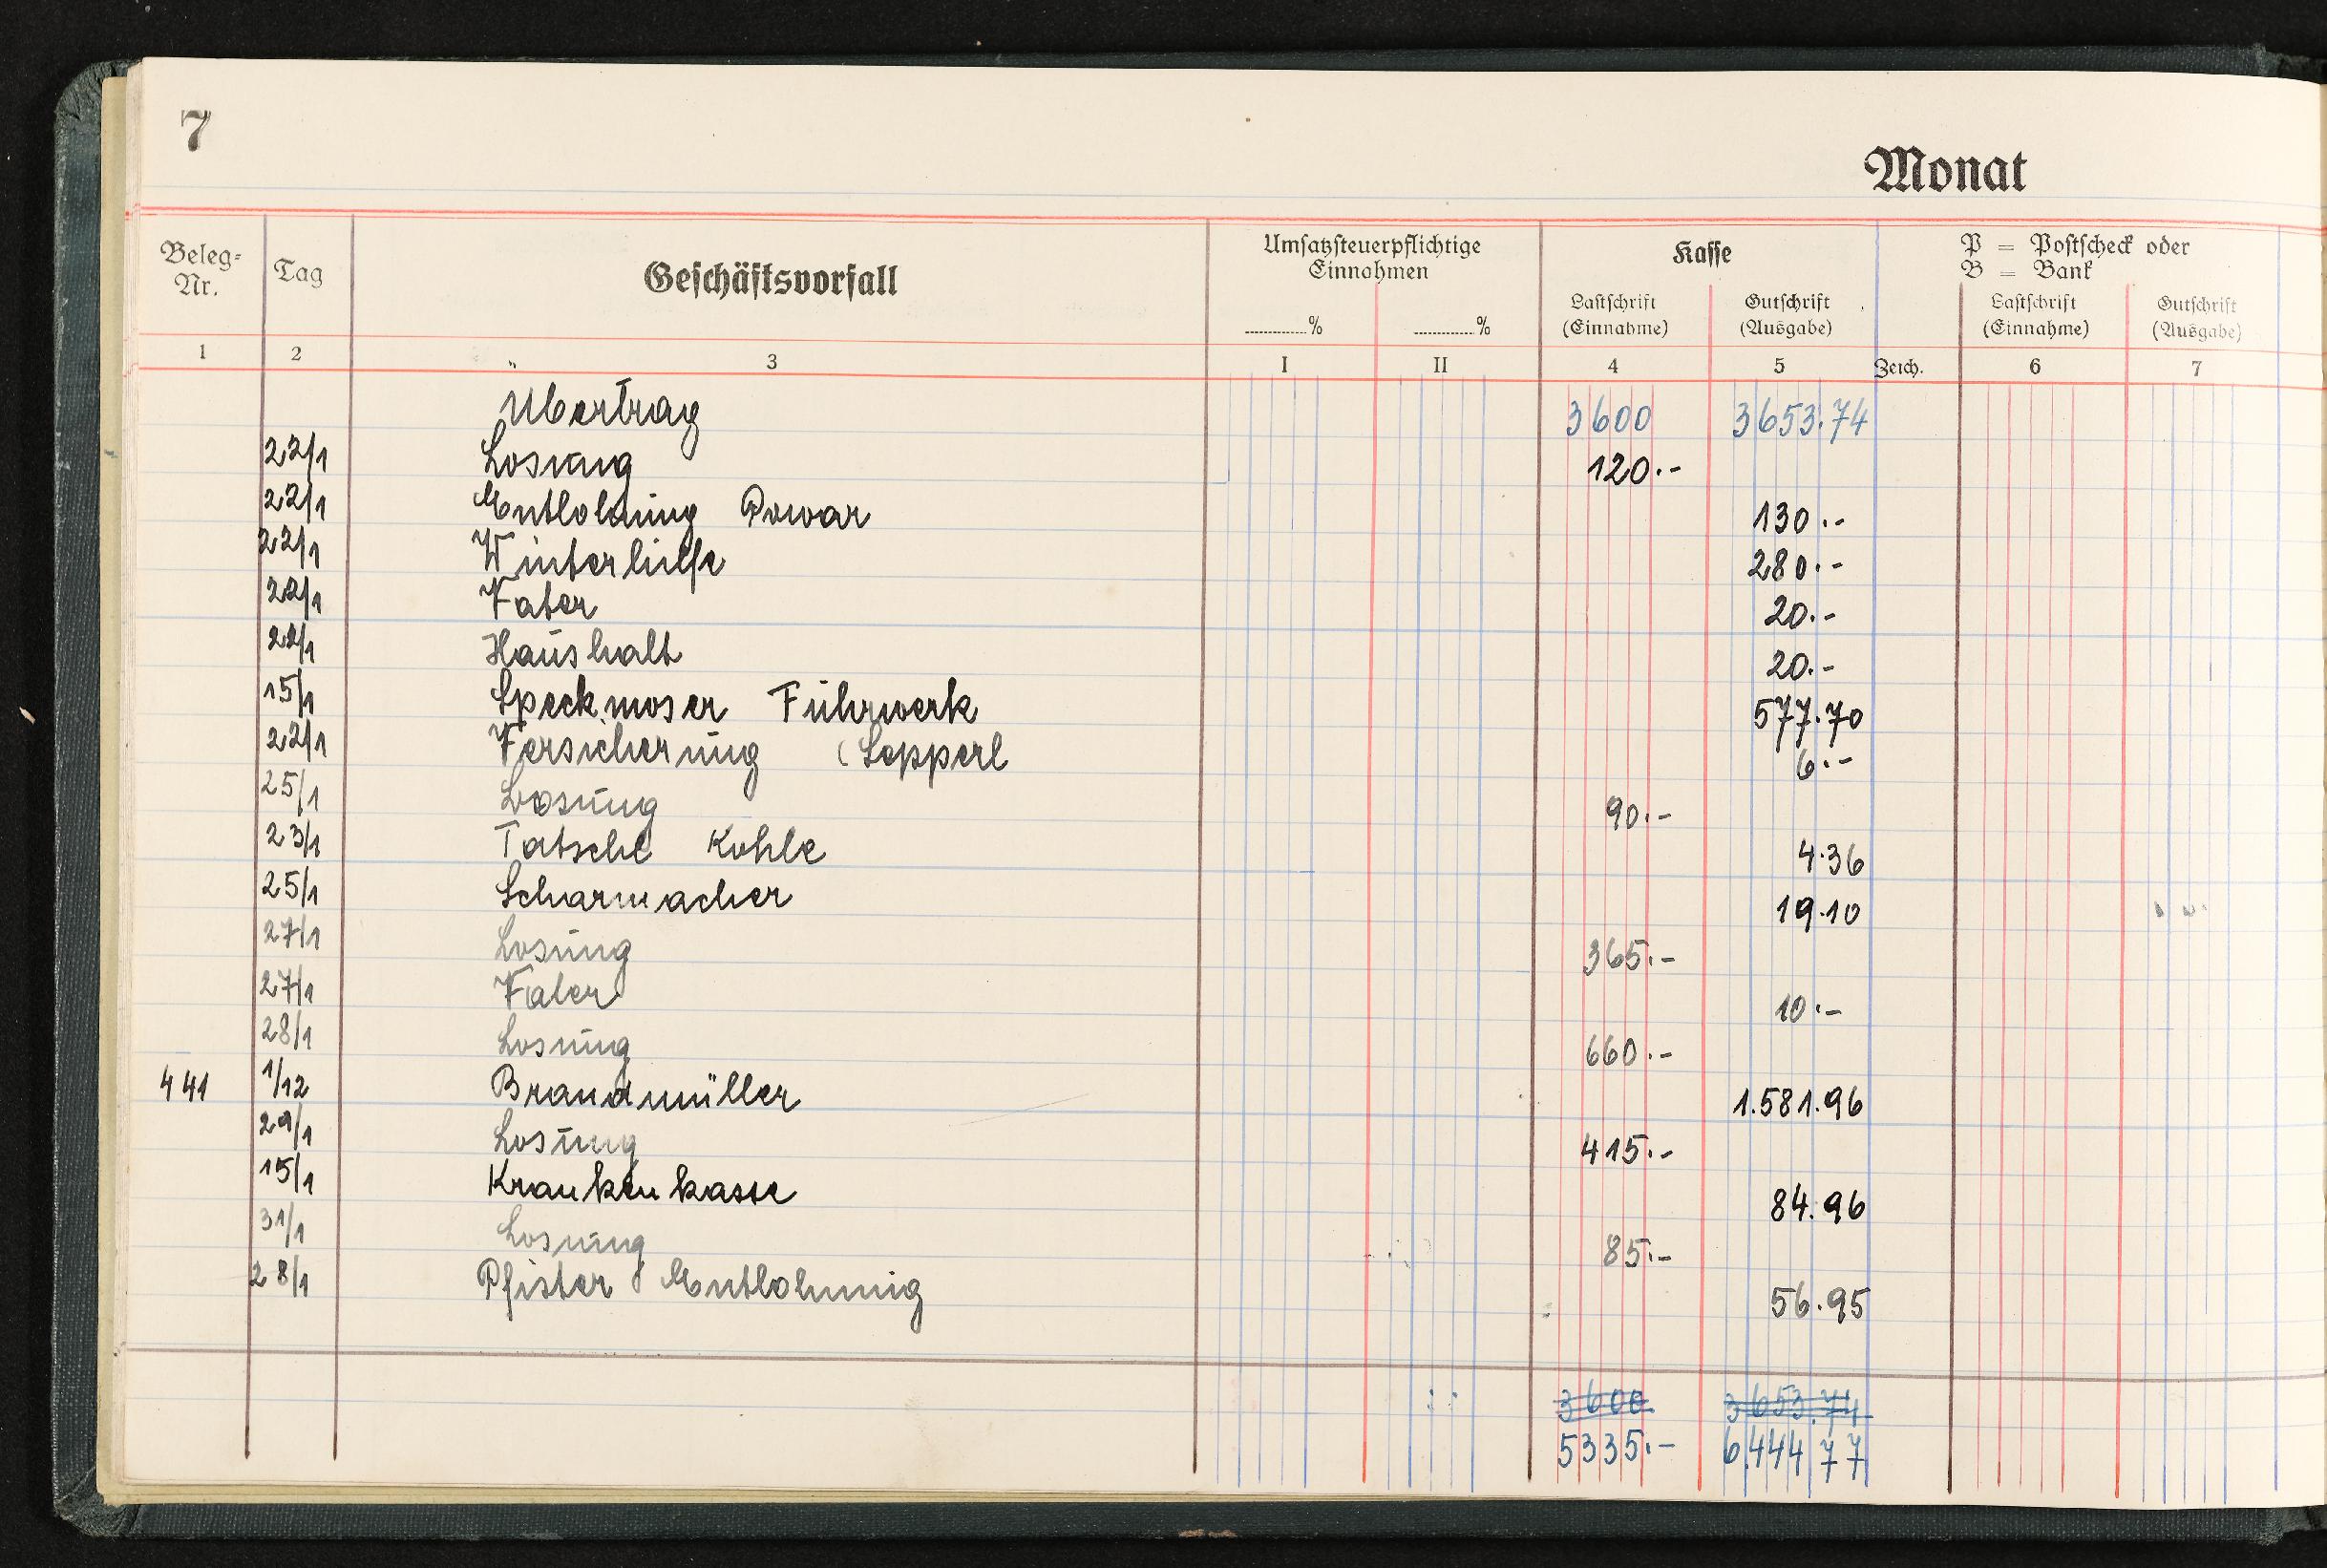 7
Monat
Beleg-Nr. Tag Geschäftsvorfall Umsatzsteuerpflichtige Einnahmen Kasse P = Postscheck oder B = Bank
............% ............% Lastschrift (Einnahme) Gutschrift (Ausgabe) Lastschrift (Einnahme) Gutschrift (Ausgabe)
1 2 3 I II 4 5 Zeich. 6 7
Übertrag 3600 3653.74
22/1 Losung 120.-
22/1 Entlohnung Powar 130.-
22/1 Winterhilfe 280.-
22/1 Vater 20.-
22/1 Haushalt 20.-
15/1 Speckmoser Fuhrwerk 577.70
22/1 Versicherung (Sepperl 6.-
25/1 Losung 90.-
23/1 Tatsche Kohle 4.36
25/1 Scharmacher 19.10
27/1 Losung 365.-
27/1 Vater 10.-
28/1 Losung 660.-
441 1/12 Brandmüller 1.581.96
29/1 Losung 415.-
15/1 Krankenkasse 84.96
31/1 Losung 85.-
28/1 Pfister Entlohnung 56.95
3600 3653.74
5335.- 6.444 77